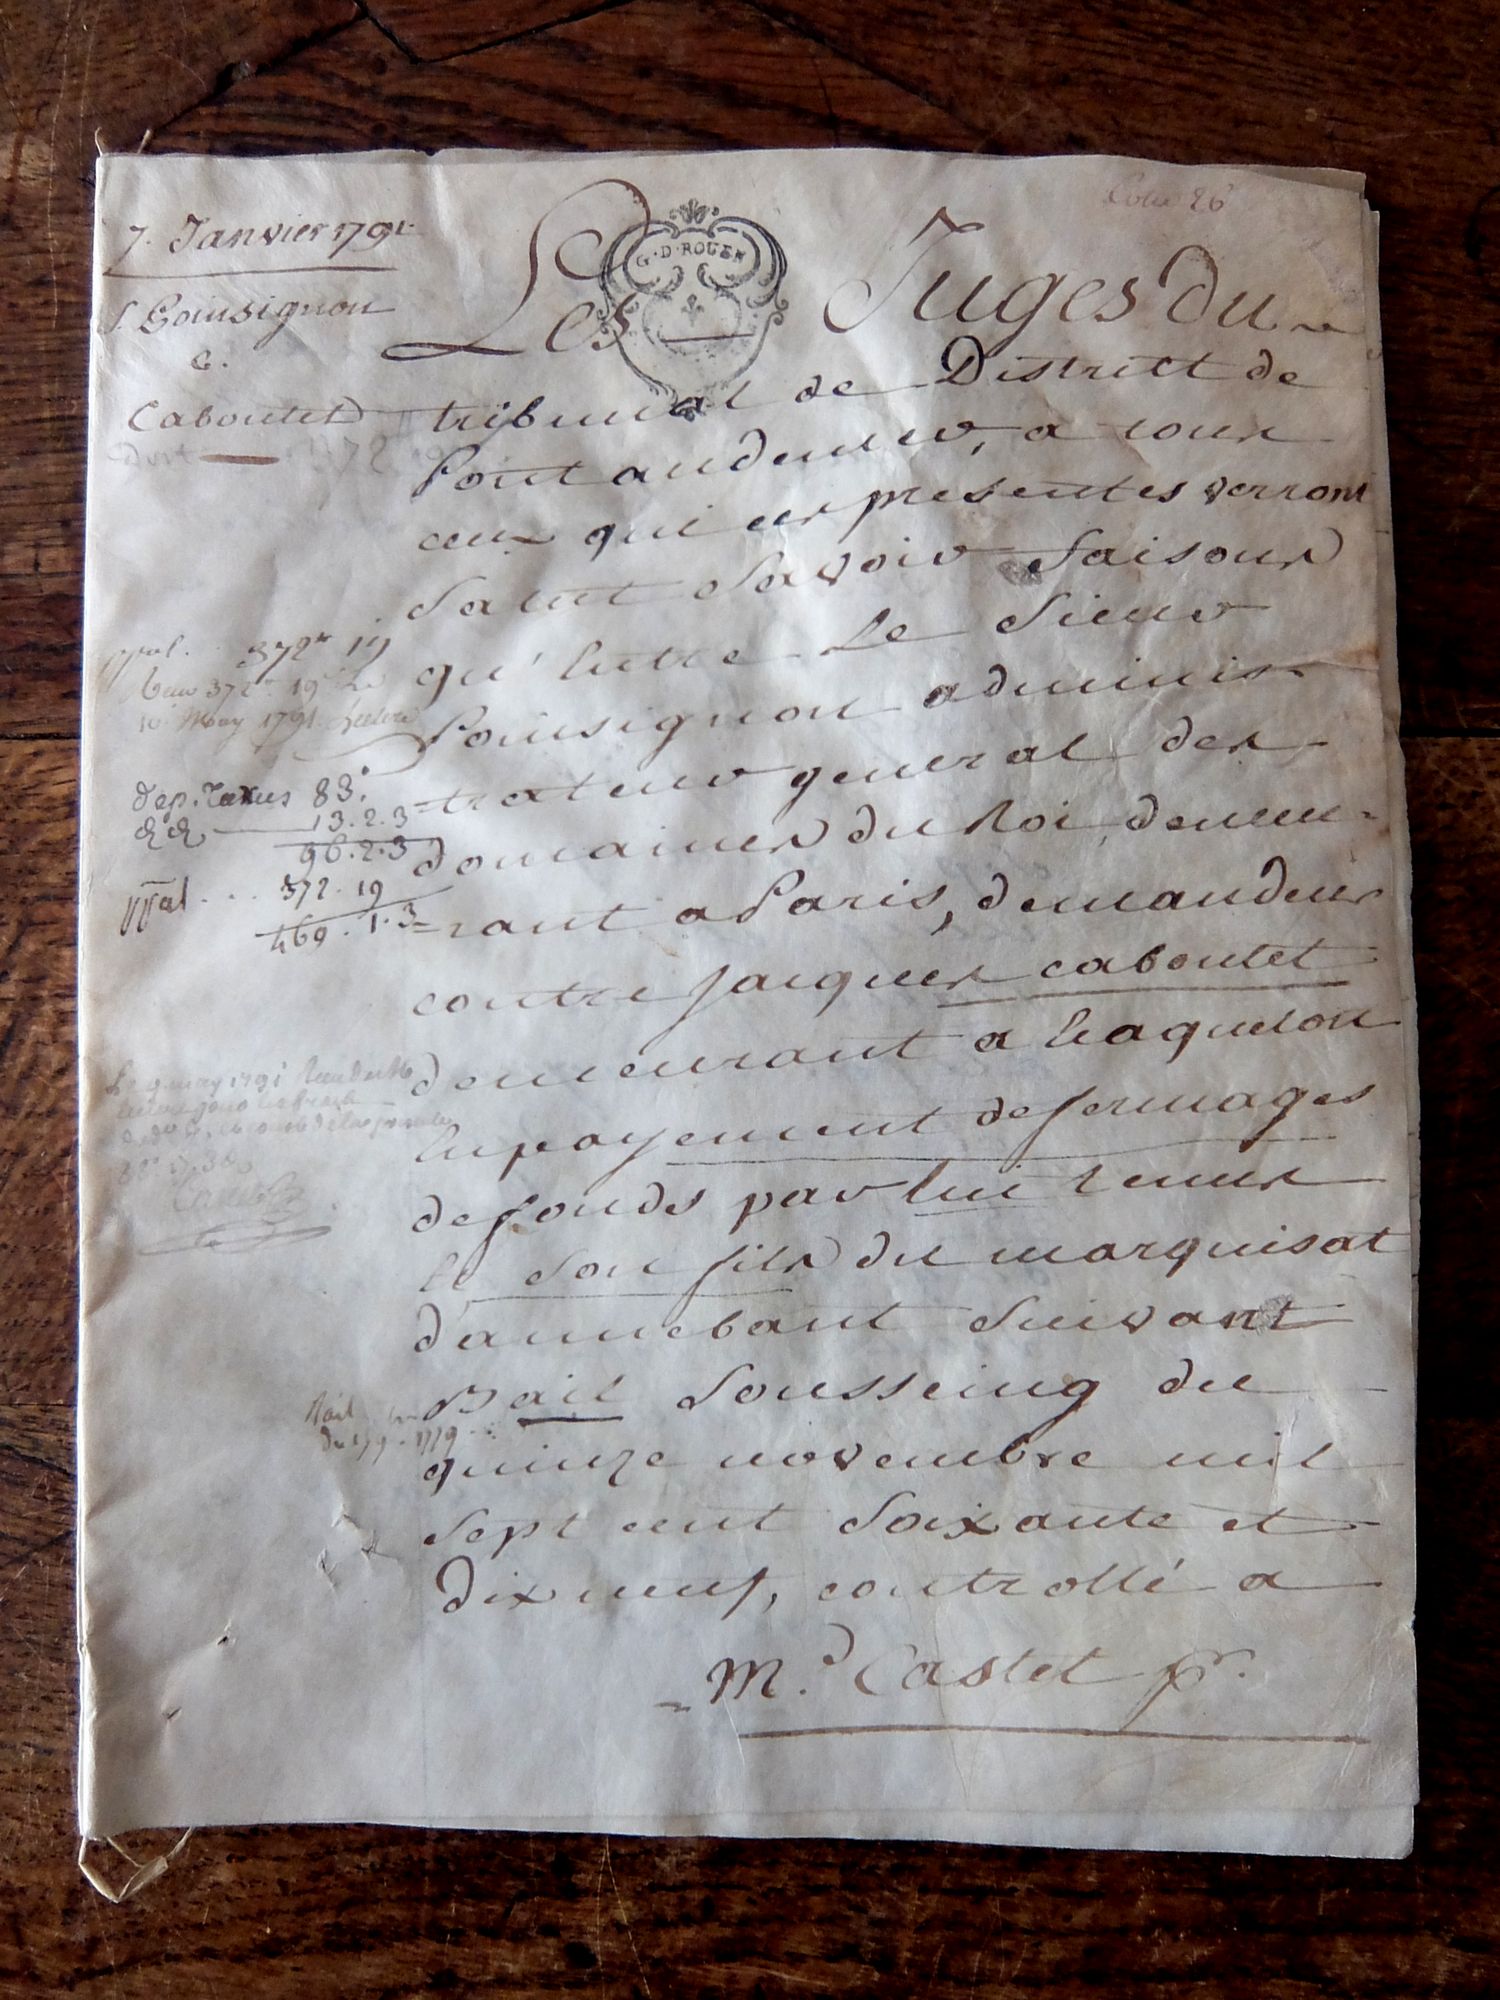 7. Janvier 1791.
S. Poinsignon
C.
Caboulet
G·D·ROUEN
Les Juges du
tribunal de District de
Pont audemer, a tous
ceux qui ces presentes verront
Salut Savoir Faisons
qu'Entre Le Sieur
Poinsignon adminis
trateur general des
domaines du Roi, demeu-
=rant a Paris, demandeur
contre Jacques caboulet
demeurant a
En payement de fermages
de fonds par lui tenus
et son fils du marquisat
dannebaut Suivant
Bail Sousseing du
quinze novembre mil
Sept cent Soixante et
Dix neuf, controllé a
M.d Castel pr.
372 19
372 19
10 May 1791.
dep. taxés 83.
13.2.3
96.2.3
ppal... 372.19
469.1.3
Le 9 may 1791
Bail
1779